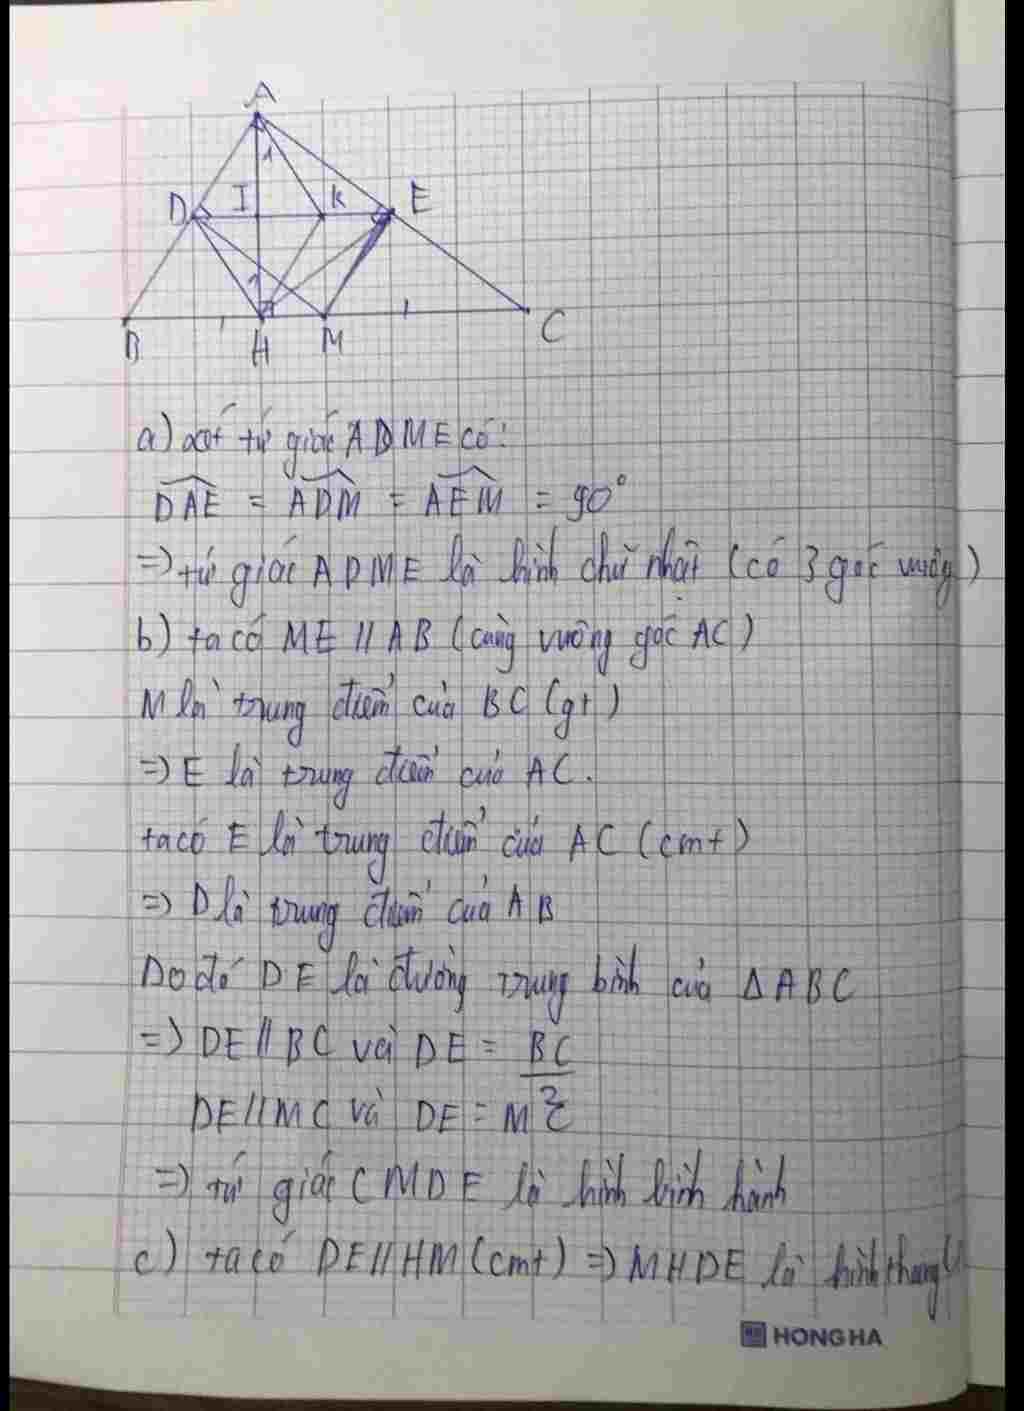 A
1
D I K E
1
B H M C
a) xét tứ giác ADME có:
DAE = ADM = AEM = 90°
=> tứ giác ADME là hình chữ nhật (có 3 góc vuông)
b) ta có ME // AB (cùng vuông góc AC)
M là trung điểm của BC (gt)
=> E là trung điểm của AC.
ta có E là trung điểm của AC (cmt)
=> D là trung điểm của AB
Do đó DE là đường trung bình của Δ ABC
=> DE // BC và DE = BC/2
DE // MC và DE = MC
=> tứ giác CMDE là hình bình hành
c) ta có DE // HM (cmt) => MHDE là hình thang (1)
HONG HA